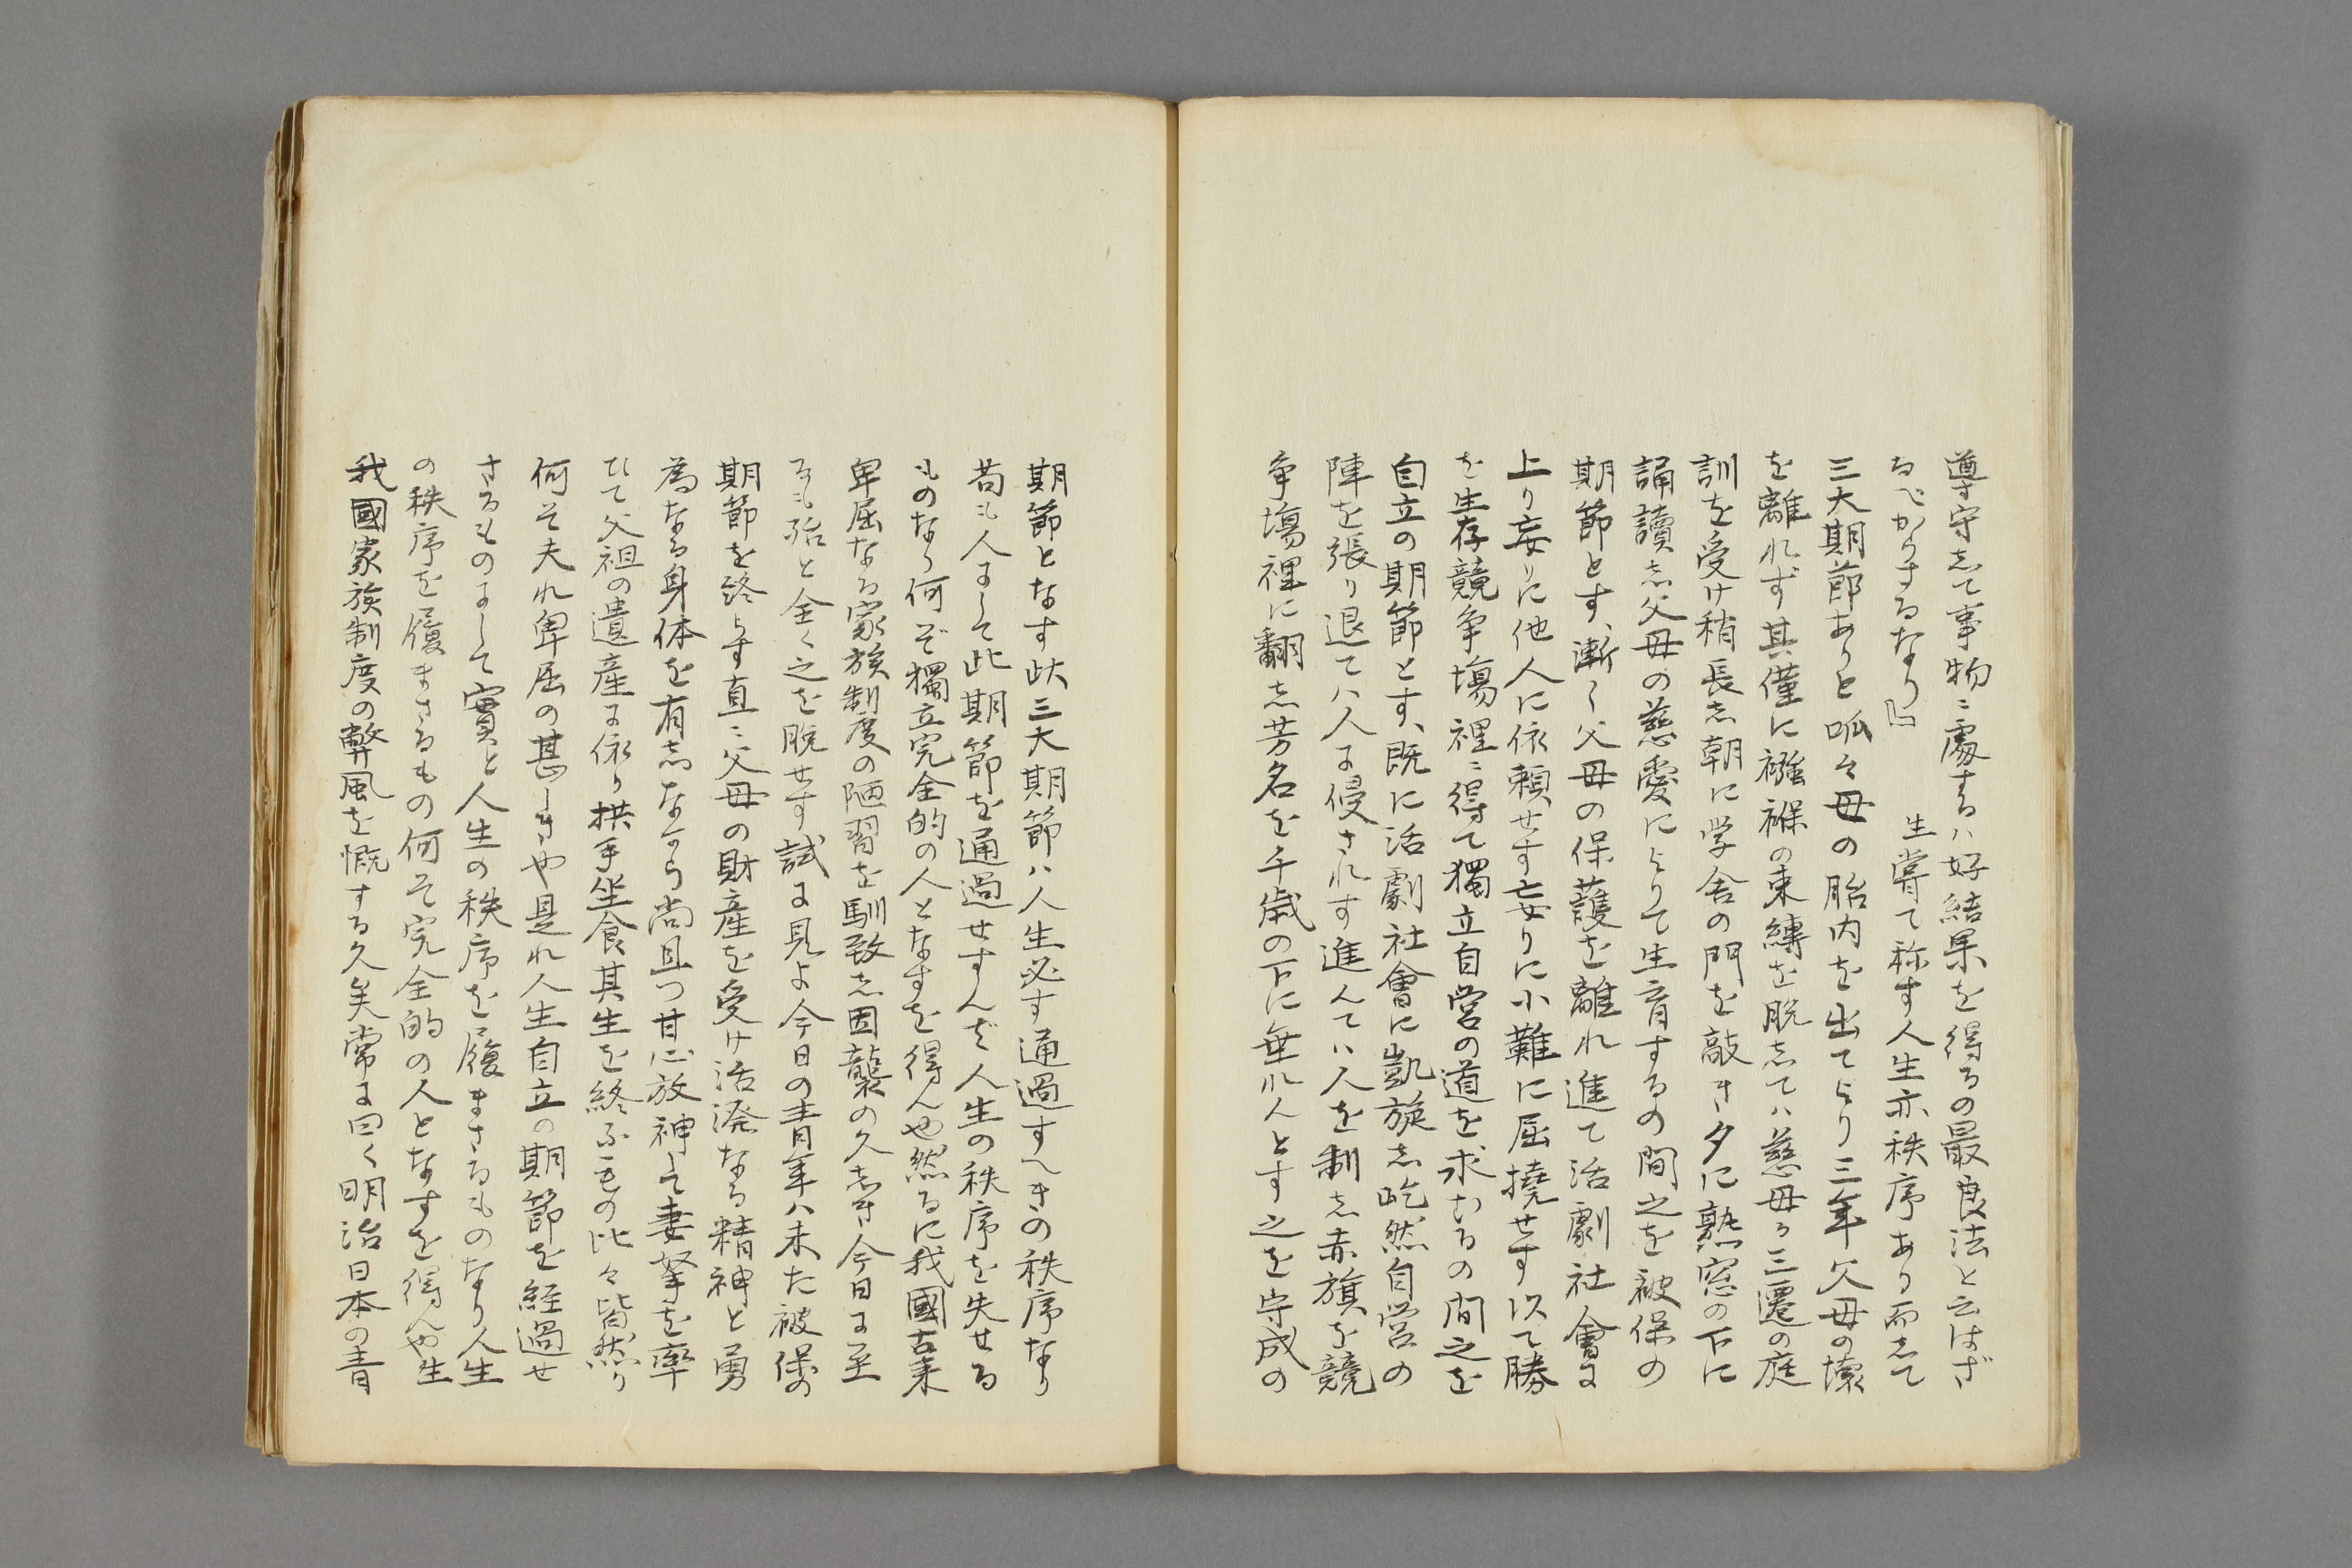 遵守志て事物ニ處するハ好結果を得るの最良法と云はざ
るべからするなり』　生嘗て称す人生亦秩序あり而志て
三大期節ありと呱々母の胎内を出てより三年父母の懐
を離れず其僅に襁褓の束縛を脱志てハ慈母の三遷の庭
訓を受け稍長志朝に学舎の門を敲き夕に熟窓の下に
誦讀志父母の慈愛によりて生育するの間之を被保の
期節とす、漸く父母の保護を離れ進て活劇社會に
上り妄りに他人に依頼せす妄りに小難に屈撓せす以て勝
を生存競争塲裡ニ得て獨立自営の道を求むるの間之を
自立の期節とす、既に活劇社會に凱旋志屹然自営の
陣を張り退てハ人に侵されす進んてハ人を制志赤旗を競
争塲裡に翻志芳名を千歳の下に垂れんとす之を守成の
期節となす此三大期節ハ人生必す通過すへきの秩序なり
苟も人にして此期節を通過せすんば人生の秩序を失せる
ものなり何ぞ獨立完全的の人となすを得んや然るに我國古来
卑屈なる家族制度の陋習を馴致志因襲の久志き今日に至
るも殆と全く之を脱せす試に見よ今日の青年ハ未た被保の
期節を終らす直ニ父母の財産を受け活溌なる精神と勇
為なる身体を有志なから尚且つ甘心放神して妻孥を率
ひて父祖の遺産に依り拱手坐食其生を終ふもの比々皆然り
何そ夫れ卑屈の甚しきや是れ人生自立の期節を経過せ
さるものにして實と人生の秩序を履まさるものなり人生
の秩序を履まさるもの何そ完全的の人となすを得んや生
我國家族制度の弊風を慨する久矣常に曰く明治日本の青